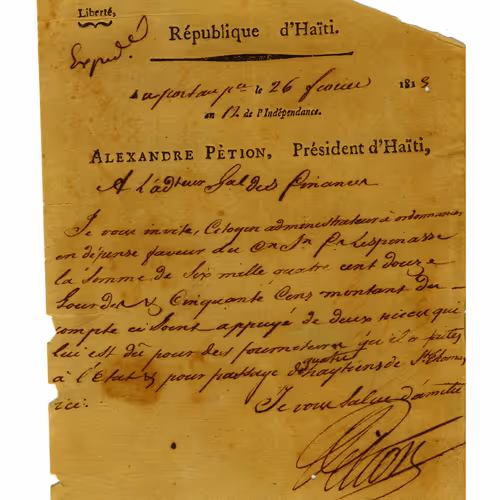 Liberté,
Expédé
République d'Haïti.
Au port au pce le 26 fevrier 1815
an 12 de l'Indépendance.
ALEXANDRE PÈTION, Président d'Haïti,
A L'adteur Gal des finances
Je vous invite, Citoyen administrateur à ordonnancer
en dépense faveur du Cen Jn Pre Lespenasse
la Somme de Six mille quatre cent douze
Gourdes & Cinquante Cens montant du
compte ci Joint appuyé de deux recus qui
lui est dû pour des fournitures qu'il a faites
à l'Etat & pour passage de quatre haytiens de St Thomas
ici.
Je vous Salue d'amitié
Pétion